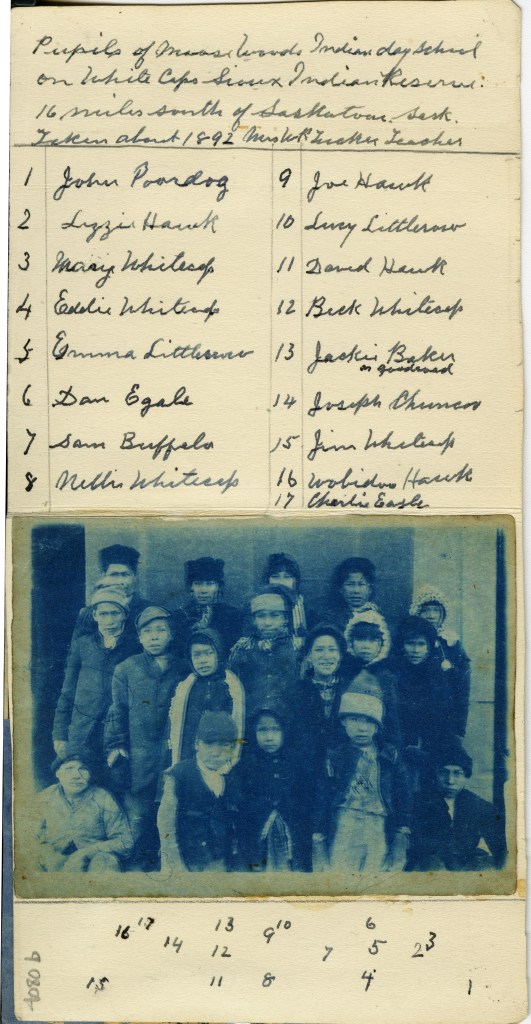 Pupils of Moose Woods Indian day school
on White Caps Sioux Indian Reserve.
16 miles south of Saskatoon Sask.
Taken about 1892 Mrs WR Tucker Teacher
1 John Poordog
2 Lizzie Hawk
3 Mary Whitecap
4 Eddie Whitecap
5 Emma Littlecrow
6 Dan Egale
7 Sam Buffalo
8 Nellie Whitecap
9 Joe Hawk
10 Lucy Littlecrow
11 David Hawk
12 Beck Whitecap
13 Jackie Baker
or goodroad
14 Joseph
15 Jim Whitecap
16 Hawk
17 Charlie Eagle
16 17 13 9 10 6
14 12 7 5 2 3
15 11 8 4 1